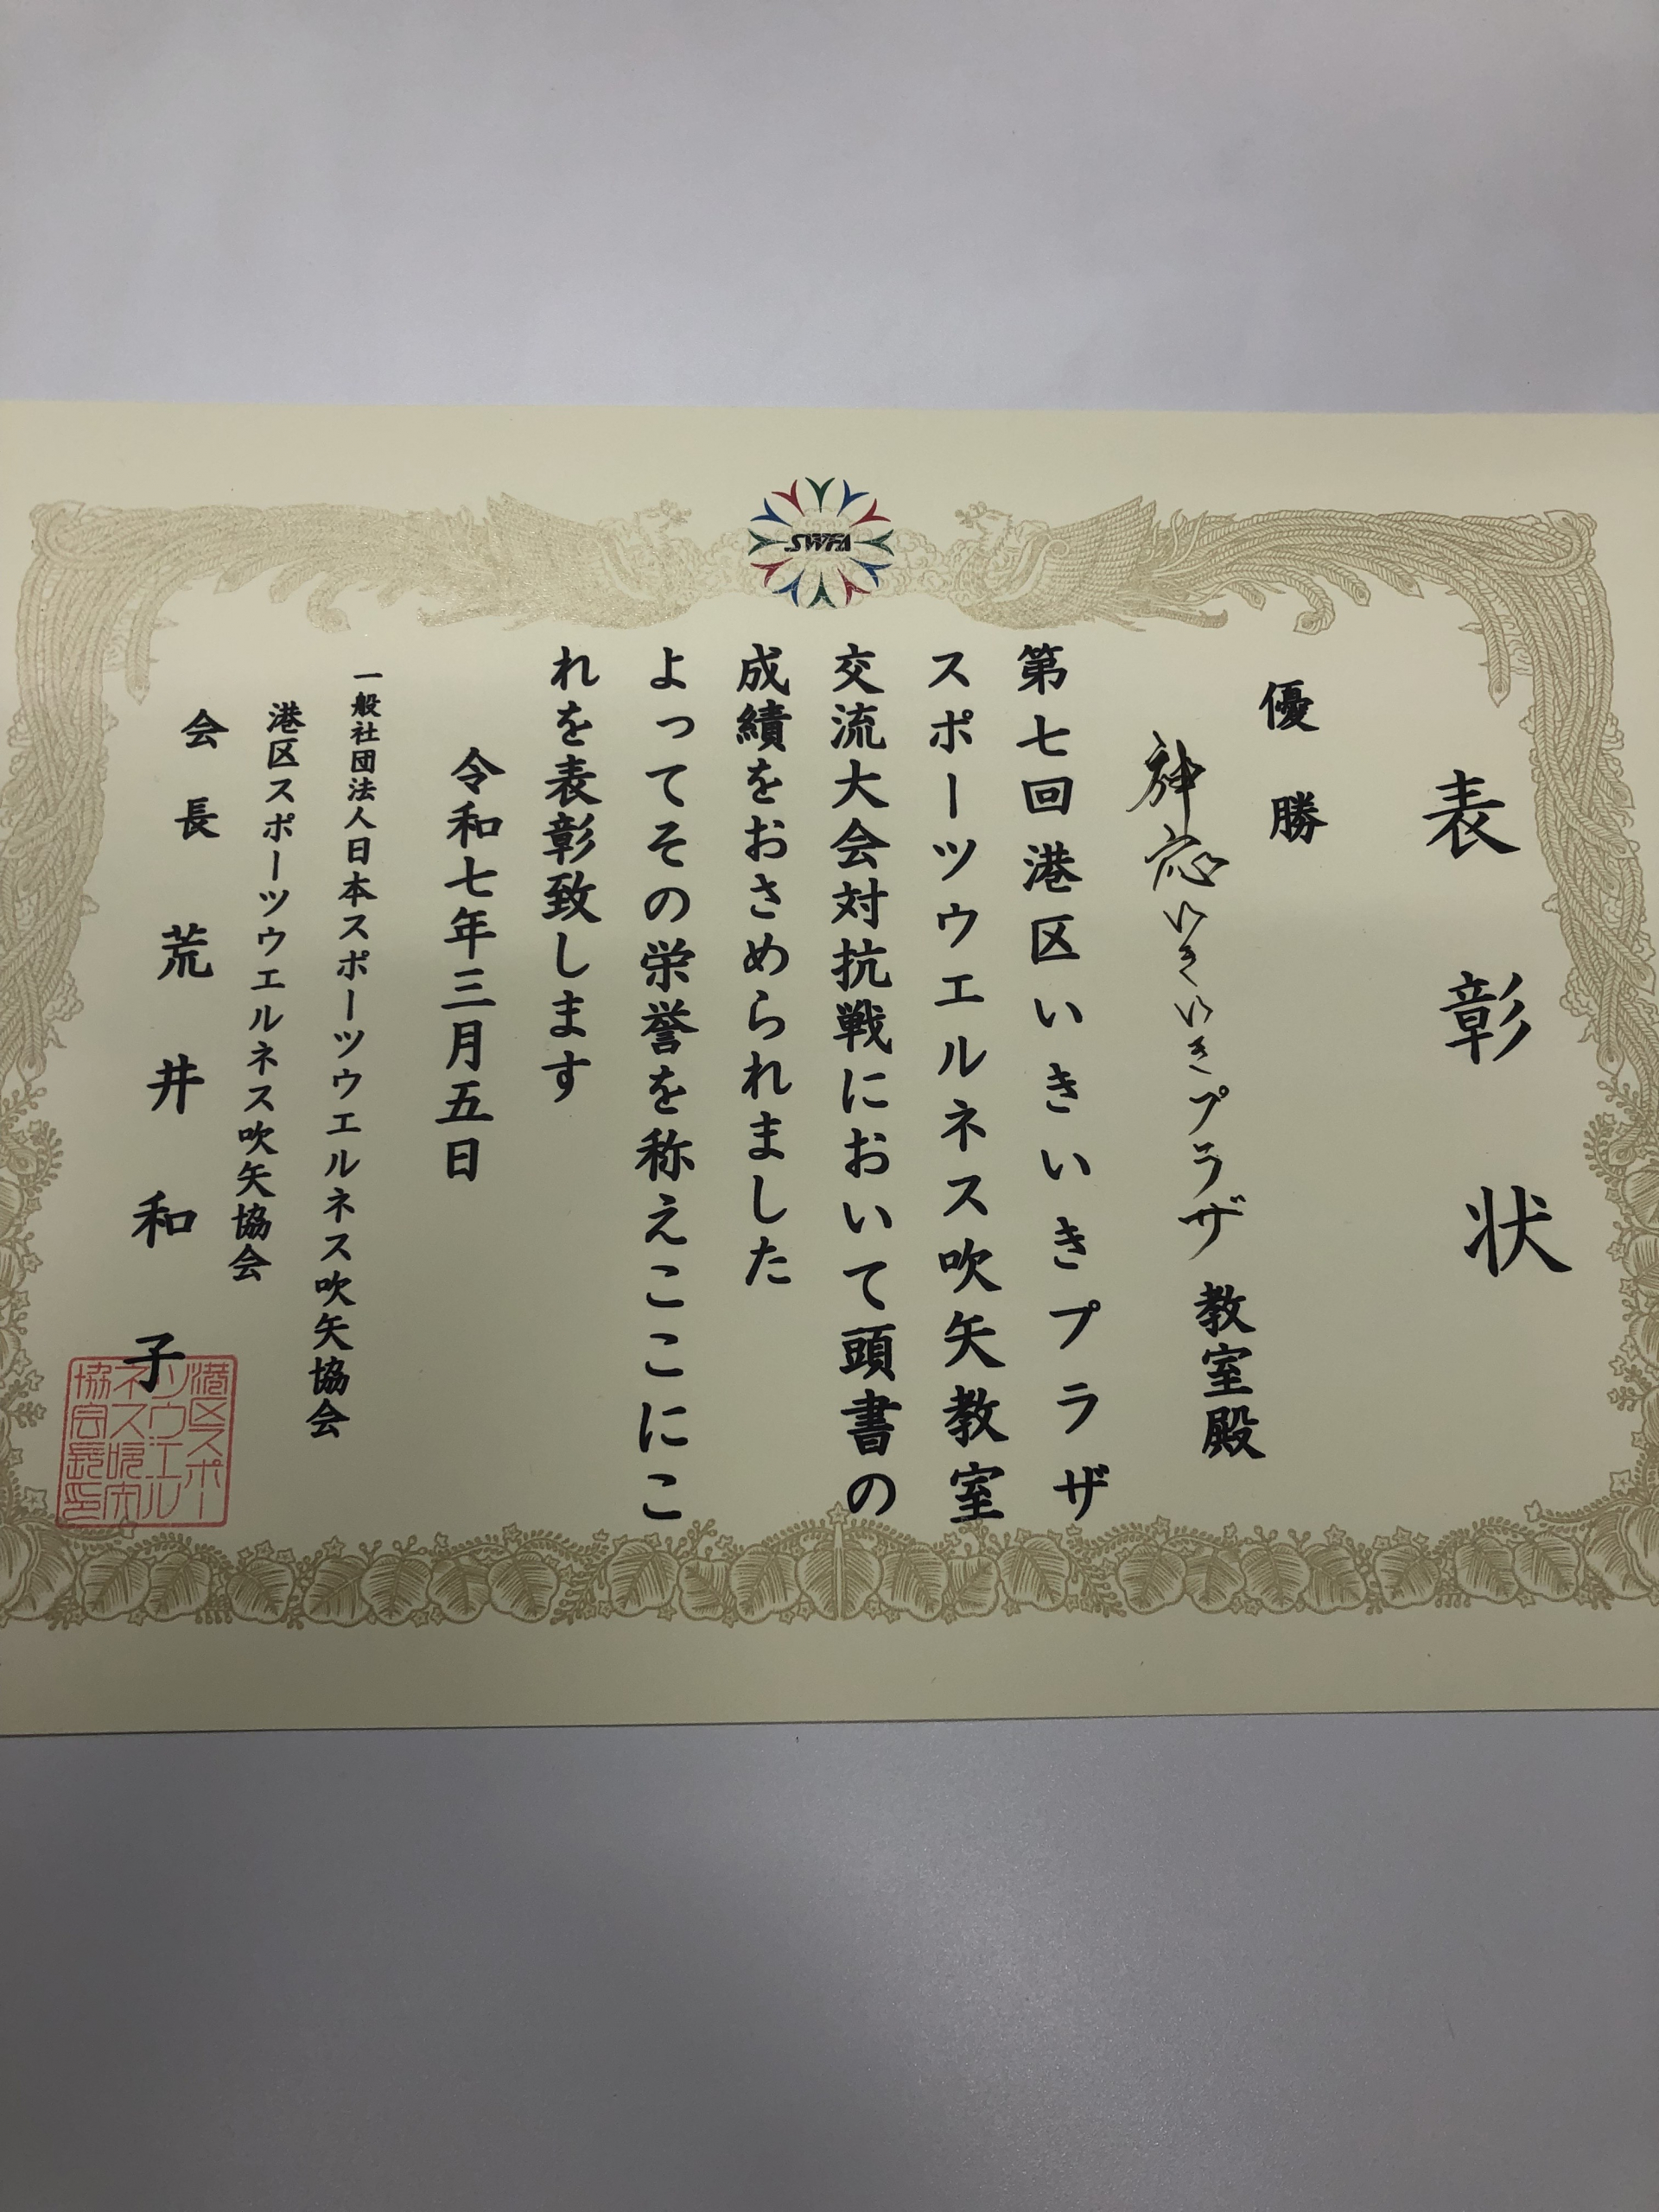 SWFA
表彰状
優勝
神応いきいきプラザ 教室殿
第七回港区いきいきプラザ
スポーツウエルネス吹矢教室
交流大会対抗戦において頭書の
成績をおさめられました
よってその栄誉を称えここにこ
れを表彰致します
令和七年三月五日
一般社団法人日本スポーツウエルネス吹矢協会
港区スポーツウエルネス吹矢協会
会長 荒井和子
港区スポー
ツウエル
ネス吹矢
協会長印